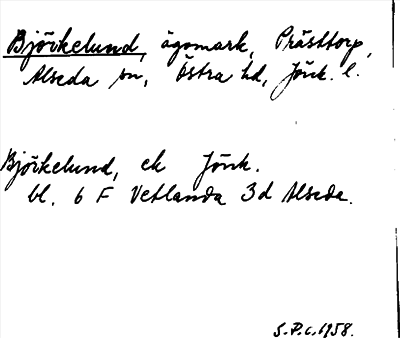 Björkelund, ägomark, Prästtorp,
Alseda sn, Östra hd, Jönk. l.
Björkelund, ek Jönk.
bl. 6 F Vetlanda 3d Alseda.
S.P.c. 1958.